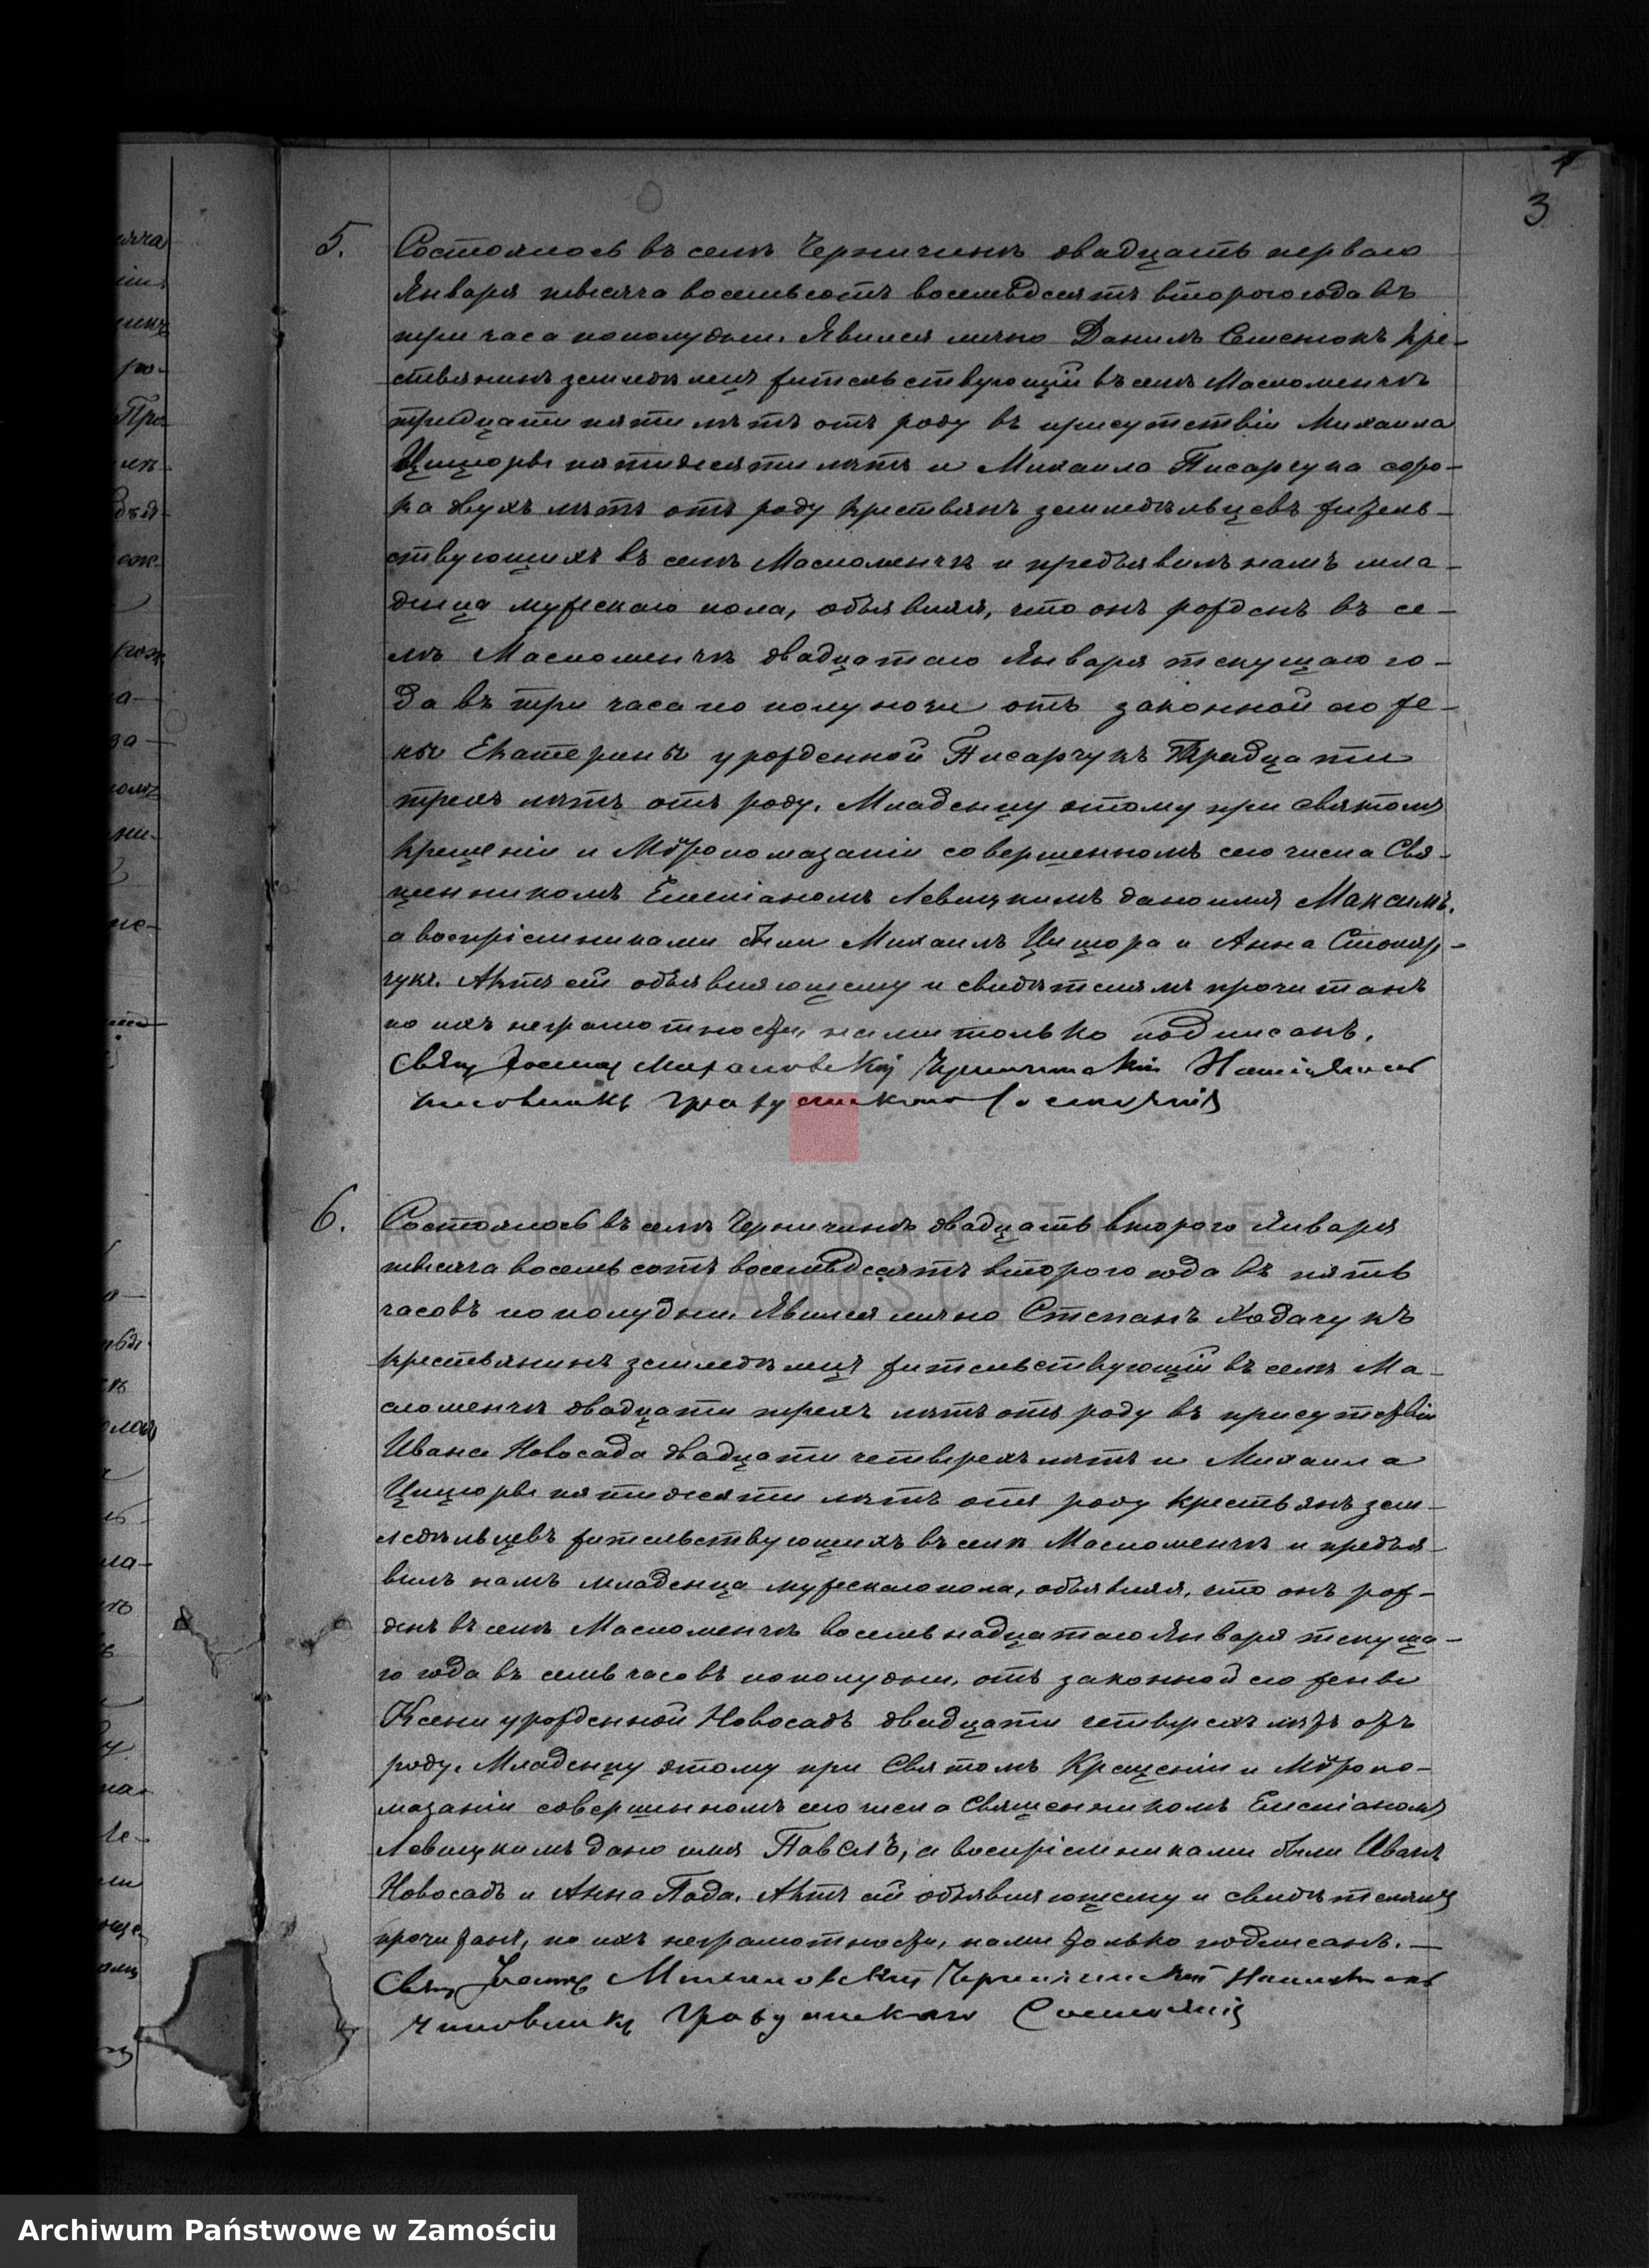 3
5. Состоялось въ селѣ Черничинѣ двадцать перваго
Января тысяча восемьсотъ восемьдесятъ втораго года въ
три часа пополудни. Явился лично Данилъ Семенюкъ кре-
стьянинъ земледѣлецъ жительствующій въ селѣ Масломенчѣ
тридцати пяти лѣтъ отъ роду въ присутствіи Михаила
Цицюры пятидесяти лѣтъ и Михаила Писарчука соро-
ка двухъ лѣтъ отъ роду крестьянъ земледѣльцевъ житель-
ствующихъ въ селѣ Масломенчѣ и предъявилъ намъ мла-
денца мужескаго пола, объявляя, что онъ рожденъ въ се-
лѣ Масломенчѣ двадцатаго Января текущаго го-
да въ три часа по полуночи отъ законной его же-
ны Екатерины урожденной Писарчукъ Тридцати
трехъ лѣтъ отъ роду. Младенцу этому при святомъ
крещеніи и Мѵропомазаніи совершенномъ сего числа Свя-
щенникомъ Емеліаномъ Левицкимъ дано имя Максимъ.
а воспріемниками были Михаилъ Цицюра и Анна Столяр-
чукъ. Актъ сей объявляющему и свидѣтелямъ прочитанъ
по ихъ неграмотности, нами только подписанъ.
Свящ
6. Состоялось въ селѣ Черничинѣ двадцать втораго Января
тысяча восемьсотъ восемьдесятъ втораго года въ пять
часовъ пополудни. Явился лично Степанъ Ходачукъ
крестьянинъ земледѣлецъ жительствующій въ селѣ Ма-
сломенчѣ двадцати трехъ лѣтъ отъ роду въ присутствіи
Ивана Новосада двадцати четырехъ лѣтъ и Михаила
Цицюры пятидесяти лѣтъ отъ роду крестьянъ зем-
ледѣльцевъ жительствующихъ въ селѣ Масломенчѣ и предъя-
вилъ намъ младенца мужескаго пола, объявляя, что онъ рож-
денъ въ селѣ Масломенчѣ восемьнадцатаго Января текуща-
го года въ семь часовъ пополудни, отъ законной его жены
Ксени урожденной Новосадъ двадцати четырехъ лѣтъ отъ
роду. Младенцу этому при Святомъ Крещеніи и Мѵропо-
мазаніи совершенномъ сего числа Священникомъ Емеліаномъ
Левицкимъ дано имя Павелъ, а воспріемниками были Иванъ
Новосадъ и Анна Пада. Актъ сей объявляющему и свидѣтелямъ
прочитанъ, по ихъ неграмотности, нами только подписанъ. —
Свящ
Чиновникъ Гражданскаго Состоянія
ARCHIWUM PAŃSTWOWE
W ZAMOŚCIU
Archiwum Państwowe w Zamościu